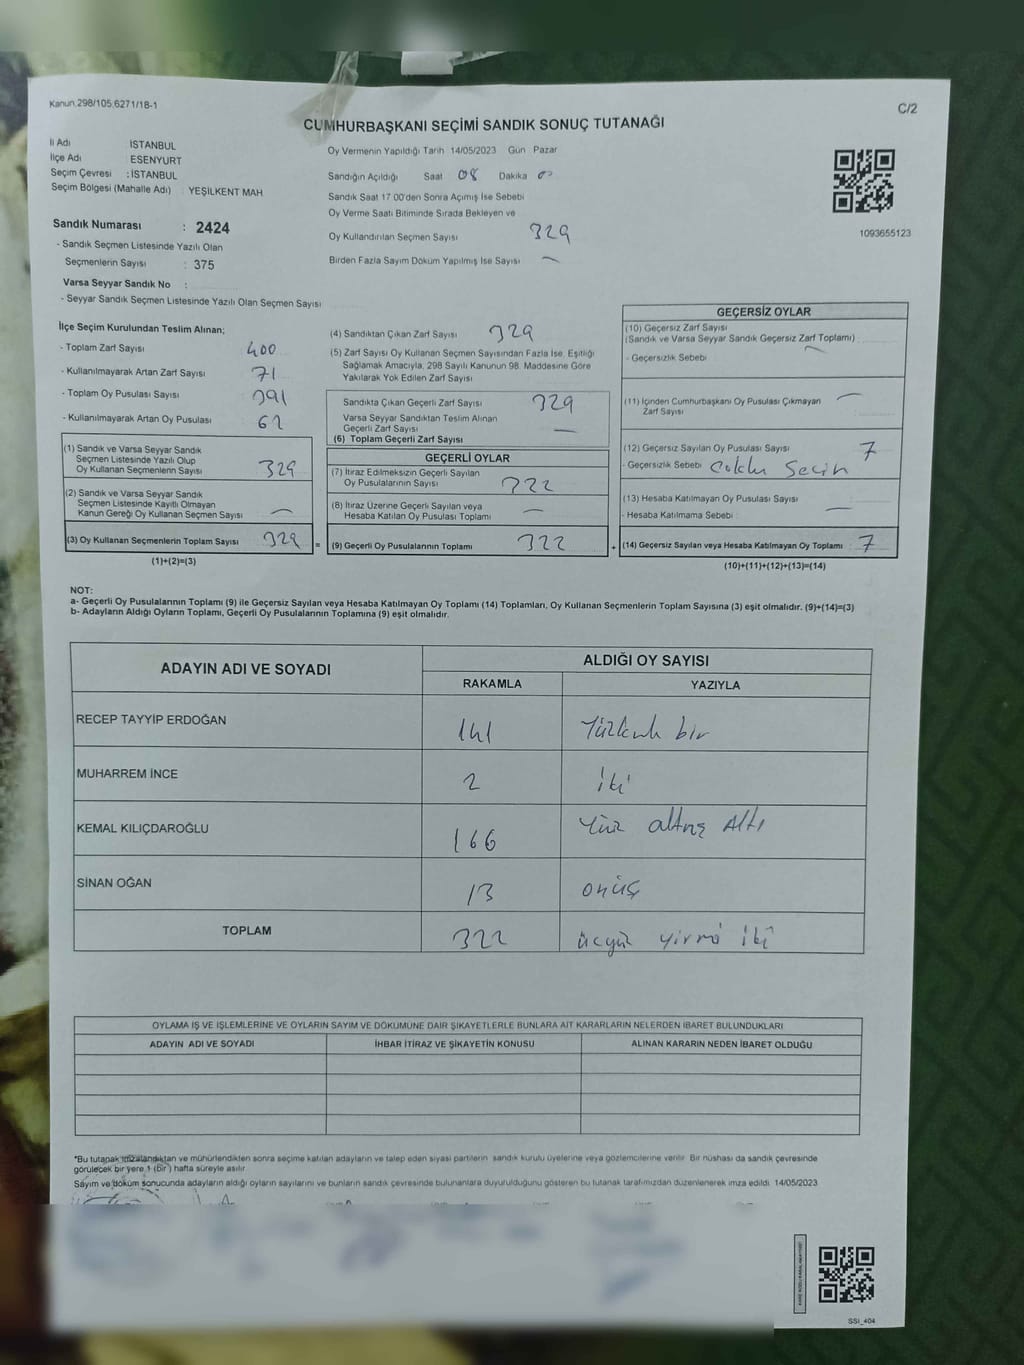 Kanun.298/105.6271/18-1
C/2
CUMHURBAŞKANI SEÇİMİ SANDIK SONUÇ TUTANAĞI
İl Adı İSTANBUL
İlçe Adı ESENYURT
Seçim Çevresi : İSTANBUL
Seçim Bölgesi (Mahalle Adı) : YEŞİLKENT MAH
Sandık Numarası : 2424
- Sandık Seçmen Listesinde Yazılı Olan
Seçmenlerin Sayısı : 375
Varsa Seyyar Sandık No :
- Seyyar Sandık Seçmen Listesinde Yazılı Olan Seçmen Sayısı
Oy Vermenin Yapıldığı Tarih 14/05/2023 Gün Pazar
Sandığın Açıldığı Saat 08 Dakika 00
Sandık Saat 17 00'den Sonra Açımış İse Sebebi
Oy Verme Saati Bitiminde Sırada Bekleyen ve
Oy Kullandırılan Seçmen Sayısı 329
Birden Fazla Sayım Döküm Yapılmış İse Sayısı —
1093655123
İlçe Seçim Kurulundan Teslim Alınan;
- Toplam Zarf Sayısı 400
- Kullanılmayarak Artan Zarf Sayısı 71
- Toplam Oy Pusulası Sayısı 391
- Kullanılmayarak Artan Oy Pusulası 62
(1) Sandık ve Varsa Seyyar Sandık
Seçmen Listesinde Yazılı Olup
Oy Kullanan Seçmenlerin Sayısı 329
(2) Sandık ve Varsa Seyyar Sandık
Seçmen Listesinde Kayıtlı Olmayan
Kanun Gereği Oy Kullanan Seçmen Sayısı —
(3) Oy Kullanan Seçmenlerin Toplam Sayısı 329
(1)+(2)=(3)
(4) Sandıktan Çıkan Zarf Sayısı 329
(5) Zarf Sayısı Oy Kullanan Seçmen Sayısından Fazla İse, Eşitliği
Sağlamak Amacıyla, 298 Sayılı Kanunun 98. Maddesine Göre
Yakılarak Yok Edilen Zarf Sayısı
Sandıkta Çıkan Geçerli Zarf Sayısı 329
Varsa Seyyar Sandıktan Teslim Alınan
Geçerli Zarf Sayısı —
(6) Toplam Geçerli Zarf Sayısı
GEÇERLİ OYLAR
(7) İtiraz Edilmeksizin Geçerli Sayılan
Oy Pusulalarının Sayısı 322
(8) İtiraz Üzerine Geçerli Sayılan veya
Hesaba Katılan Oy Pusulası Toplamı —
= (9) Geçerli Oy Pusulalarının Toplamı 322
GEÇERSİZ OYLAR
(10) Geçersiz Zarf Sayısı
(Sandık ve Varsa Seyyar Sandık Geçersiz Zarf Toplamı) : —
- Geçersizlik Sebebi
(11) İçinden Cumhurbaşkanı Oy Pusulası Çıkmayan —
Zarf Sayısı
(12) Geçersiz Sayılan Oy Pusulası Sayısı 7
- Geçersizlik Sebebi Çoklu Seçim
(13) Hesaba Katılmayan Oy Pusulası Sayısı —
- Hesaba Katılmama Sebebi
+ (14) Geçersiz Sayılan veya Hesaba Katılmayan Oy Toplamı : 7
(10)+(11)+(12)+(13)=(14)
NOT:
a- Geçerli Oy Pusulalarının Toplamı (9) ile Geçersiz Sayılan veya Hesaba Katılmayan Oy Toplamı (14) Toplamları, Oy Kullanan Seçmenlerin Toplam Sayısına (3) eşit olmalıdır. (9)+(14)=(3)
b- Adayların Aldığı Oyların Toplamı, Geçerli Oy Pusulalarının Toplamına (9) eşit olmalıdır.
ADAYIN ADI VE SOYADI ALDIĞI OY SAYISI
RAKAMLA YAZIYLA
RECEP TAYYİP ERDOĞAN 141 Yüzkırk bir
MUHARREM İNCE 2 iki
KEMAL KILIÇDAROĞLU 166 Yüz altmış Altı
SİNAN OĞAN 13 onüç
TOPLAM 322 üçyüz yirmi iki
OYLAMA İŞ VE İŞLEMLERİNE VE OYLARIN SAYIM VE DÖKÜMÜNE DAİR ŞİKAYETLERLE BUNLARA AİT KARARLARIN NELERDEN İBARET BULUNDUKLARI
ADAYIN ADI VE SOYADI İHBAR İTİRAZ VE ŞİKAYETİN KONUSU ALINAN KARARIN NEDEN İBARET OLDUĞU
*Bu tutanak imzalandıktan ve mühürlendikten sonra seçime katılan adayların ve talep eden siyasi partilerin sandık kurulu üyelerine veya gözlemcilerine verilir. Bir nüshası da sandık çevresinde
görülecek bir yere 1 (Bir) hafta süreyle asılır.
Sayım ve döküm sonucunda adayların aldığı oyların sayılarını ve bunların sandık çevresinde bulunanlara duyurulduğunu gösteren bu tutanak tarafımızdan düzenlenerek imza edildi. 14/05/2023
SSI_404